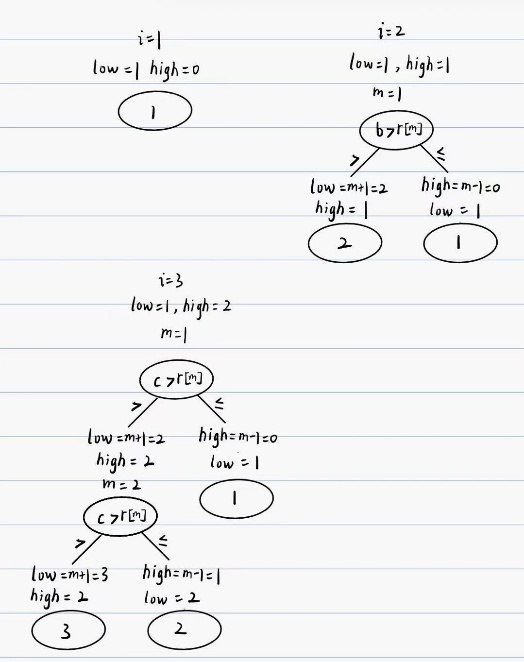 i=1
low=1 high=0
1
i=2
low=1, high=1
m=1
b>r[m]
> ≤
low=m+1=2 high=m-1=0
high=1 low=1
2 1
i=3
low=1, high=2
m=1
c>r[m]
> ≤
low=m+1=2 high=m-1=0
high=2 low=1
m=2 1
c>r[m]
> ≤
low=m+1=3 high=m-1=1
high=2 low=2
3 2